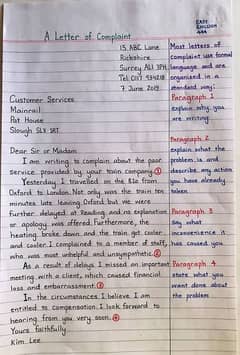 EASY
ENGLISH
4all
A Letter of Complaint
15, ABC Lane
Rickshire
Surrey AL1 3PH
Tel 0117
7 June 2019
Customer Services
Mainrail
Pat House
Slough SL3 1RT
Dear Sir or Madam
I am writing to complain about the poor
service provided by your train company. 1
Yesterday I travelled on the 8.16 from
Oxford to London. Not only was the train ten
minutes late leaving Oxford but we were
further delayed at Reading and no explanation
or apology was offered. Furthermore, the
heating broke down and the train got cooler
and cooler. I complained to a member of staff,
who was most unhelpful and unsympathetic. 2
As a result of delays I missed an important
meeting with a client, which caused financial
loss and embarrassment. 3
In the circumstances I believe I am
entitled to compensation. I look forward to
hearing from you very soon. 4
Yours faithfully
Kim Lee.
Most letters of
complaint use formal
language and are
organised in a
standard way:
Paragraph 1
explain why you
are writing
Paragraph 2
explain what the
problem is and
describe any action
you have already
taken
Paragraph 3
say what
inconvenience it
has caused you
Paragraph 4
state what you
want done about
the problem